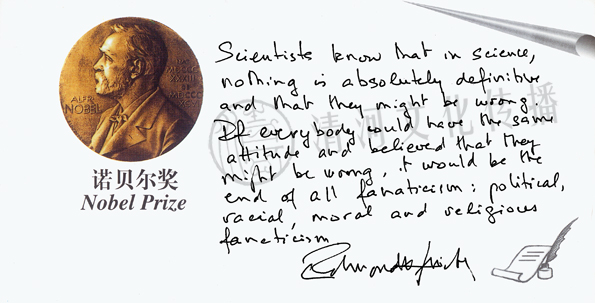 ALFR.
NOBEL
诺贝尔奖
Nobel Prize
Scientists know that in science,
nothing is absolutely definitive
and that they might be wrong.
If everybody could have the same
attitude and believed that they
might be wrong, it would be the
end of all fanaticism: political,
racial, moral and religious
fanaticism
Edmond
清河文化传播